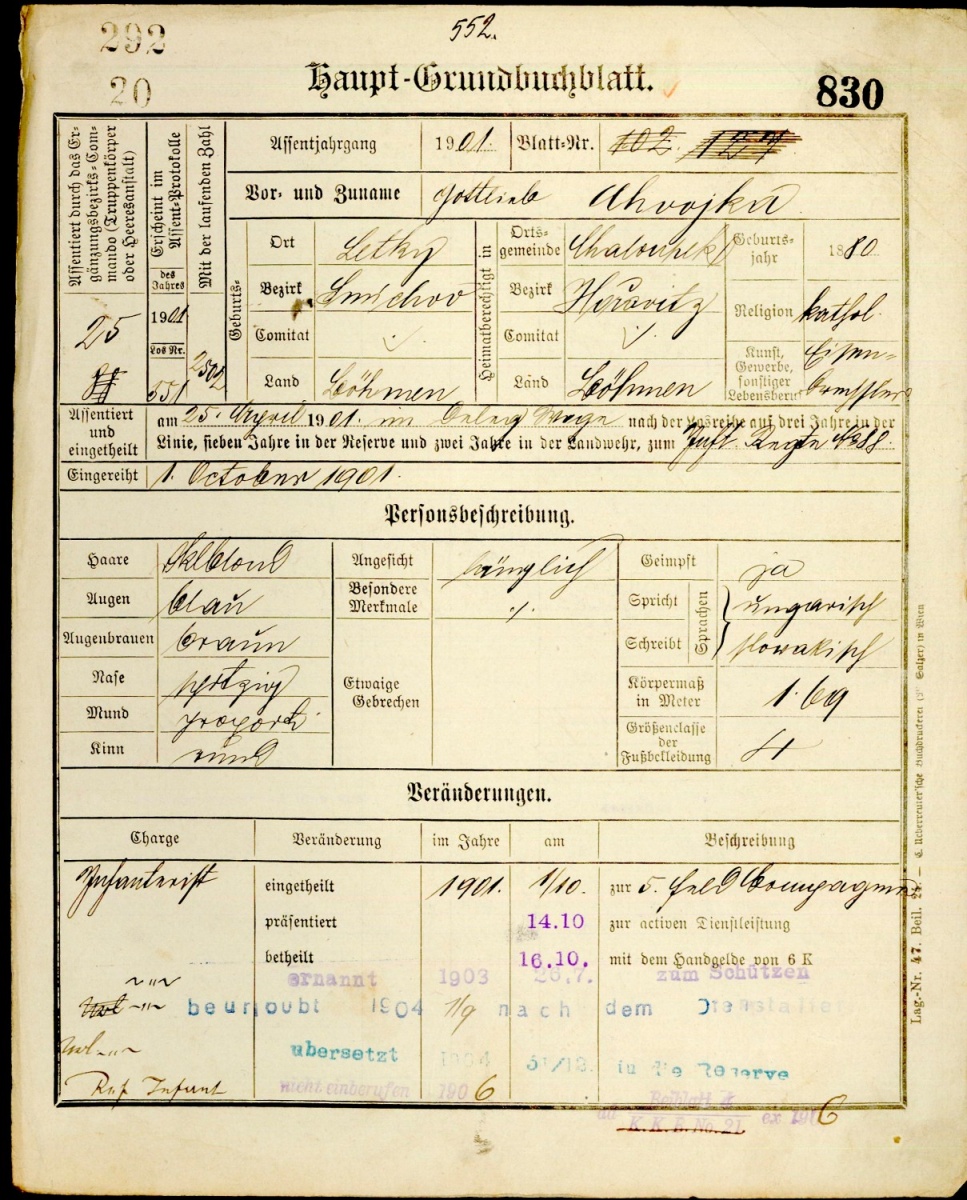 292
20
552.
Haupt-Grundbuchblatt.
830
Assentiert durch das Er-
gänzungsbezirks-Com-
mando (Truppenkörper
oder Heeresanstalt)
25
Erscheint im
Assent-Protokolle
des
Jahres
1901
Los Nr.
551
Mit der laufenden Zahl
Assentjahrgang 1901. Blatt-Nr. 102.
Vor- und Zuname Gottlieb
Geburts-
Ort Letky
Bezirk Smichov
Comitat ./.
Land Böhmen
Heimatberechtigt in
Orts-
gemeinde
Bezirk
Comitat ./.
Land Böhmen
Geburts-
jahr 1880
Religion kathol.
Kunst,
Gewerbe,
sonstiger
Lebensberuf Eisen-
Assentiert
und
eingetheilt
am 25. April 1901. in nach der Losreihe auf drei Jahre in der
Linie, sieben Jahre in der Reserve und zwei Jahre in der Landwehr, zum Inft. Regte No 88.
Eingereiht 1. October 1901.
Personsbeschreibung.
Haare
Augen blau
Augenbrauen braun
Nase spitzig
Mund proport.
Kinn rund
Angesicht länglich
Besondere
Merkmale ./.
Etwaige
Gebrechen
Geimpft ja
Spricht
Schreibt
Sprachen
ungarisch
slovakisch
Körpermaß
in Meter 1.69
Größenclasse
der
Fußbekleidung
Veränderungen.
Charge Veränderung im Jahre am Beschreibung
Infanterist eingetheilt 1901. 1/10. zur 5. Feld Compagnie
präsentiert 14.10 zur activen Dienstleistung
betheilt 16.10. mit dem Handgelde von 6 K
~"~ ernannt 1903 26.7. zum Schützen
~"~ beurloubt 1904 1/9 nach dem Dienstalter
~"~ übersetzt 1904 31/12. in die Reserve
Res Infant nicht einberufen 1906 ad Beiblatt 4
K.K.E. No. 21 ex 1906
Lag.-Nr. 47. Beil. — C. Ueberreuter'sche Buchdruckerei (M. Salzer) in Wien